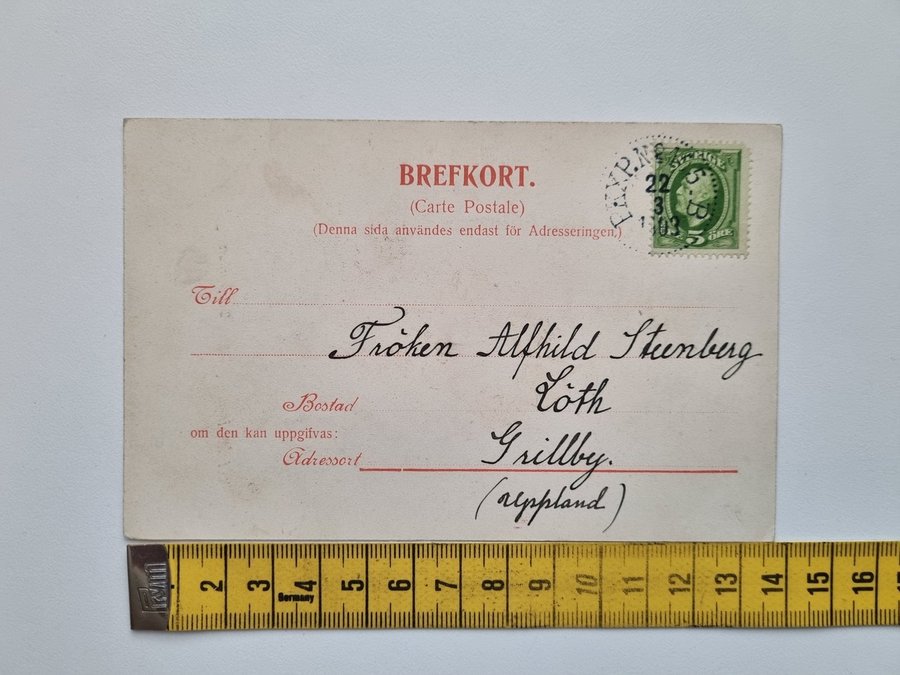 BREFKORT.
(Carte Postale)
(Denna sida användes endast för Adresseringen.)
22
3
1903
5 ÖRE
Till
Fröken Alfhild Steenberg
Bostad
Löth
om den kan uppgifvas:
Grillby.
Adressort
(Uppland)
2 3 4 5 6 7 8 9 10 11 12 13 14 15 16
Germany